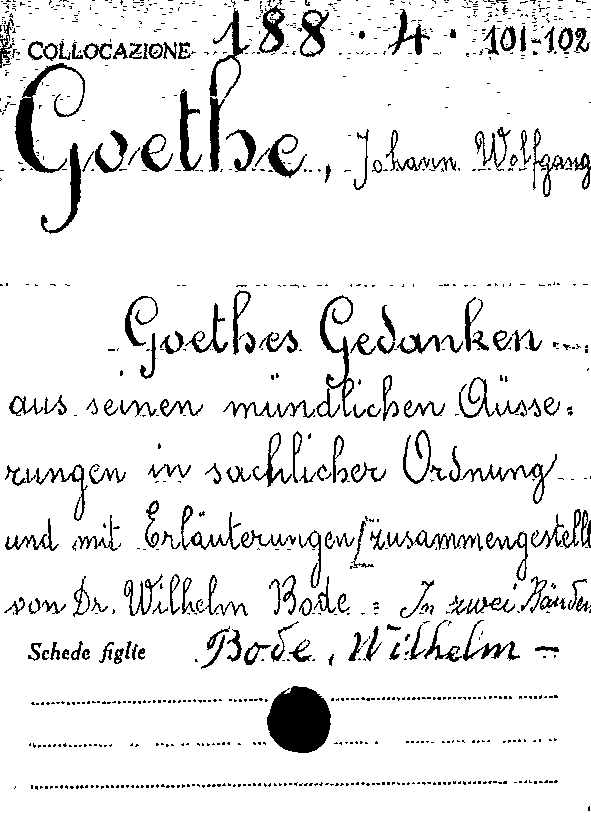 COLLOCAZIONE 188 · 4 · 101-102
Goethe, Johann Wolfgang
Goethes Gedanken
aus seinen mündlichen Äusse=
rungen in sachlicher Ordnung
und mit Erläuterungen [zusammengestellt
von Dr. Wilhelm Bode = In zwei Bänden
Schede figlie Bode, Wilhelm -